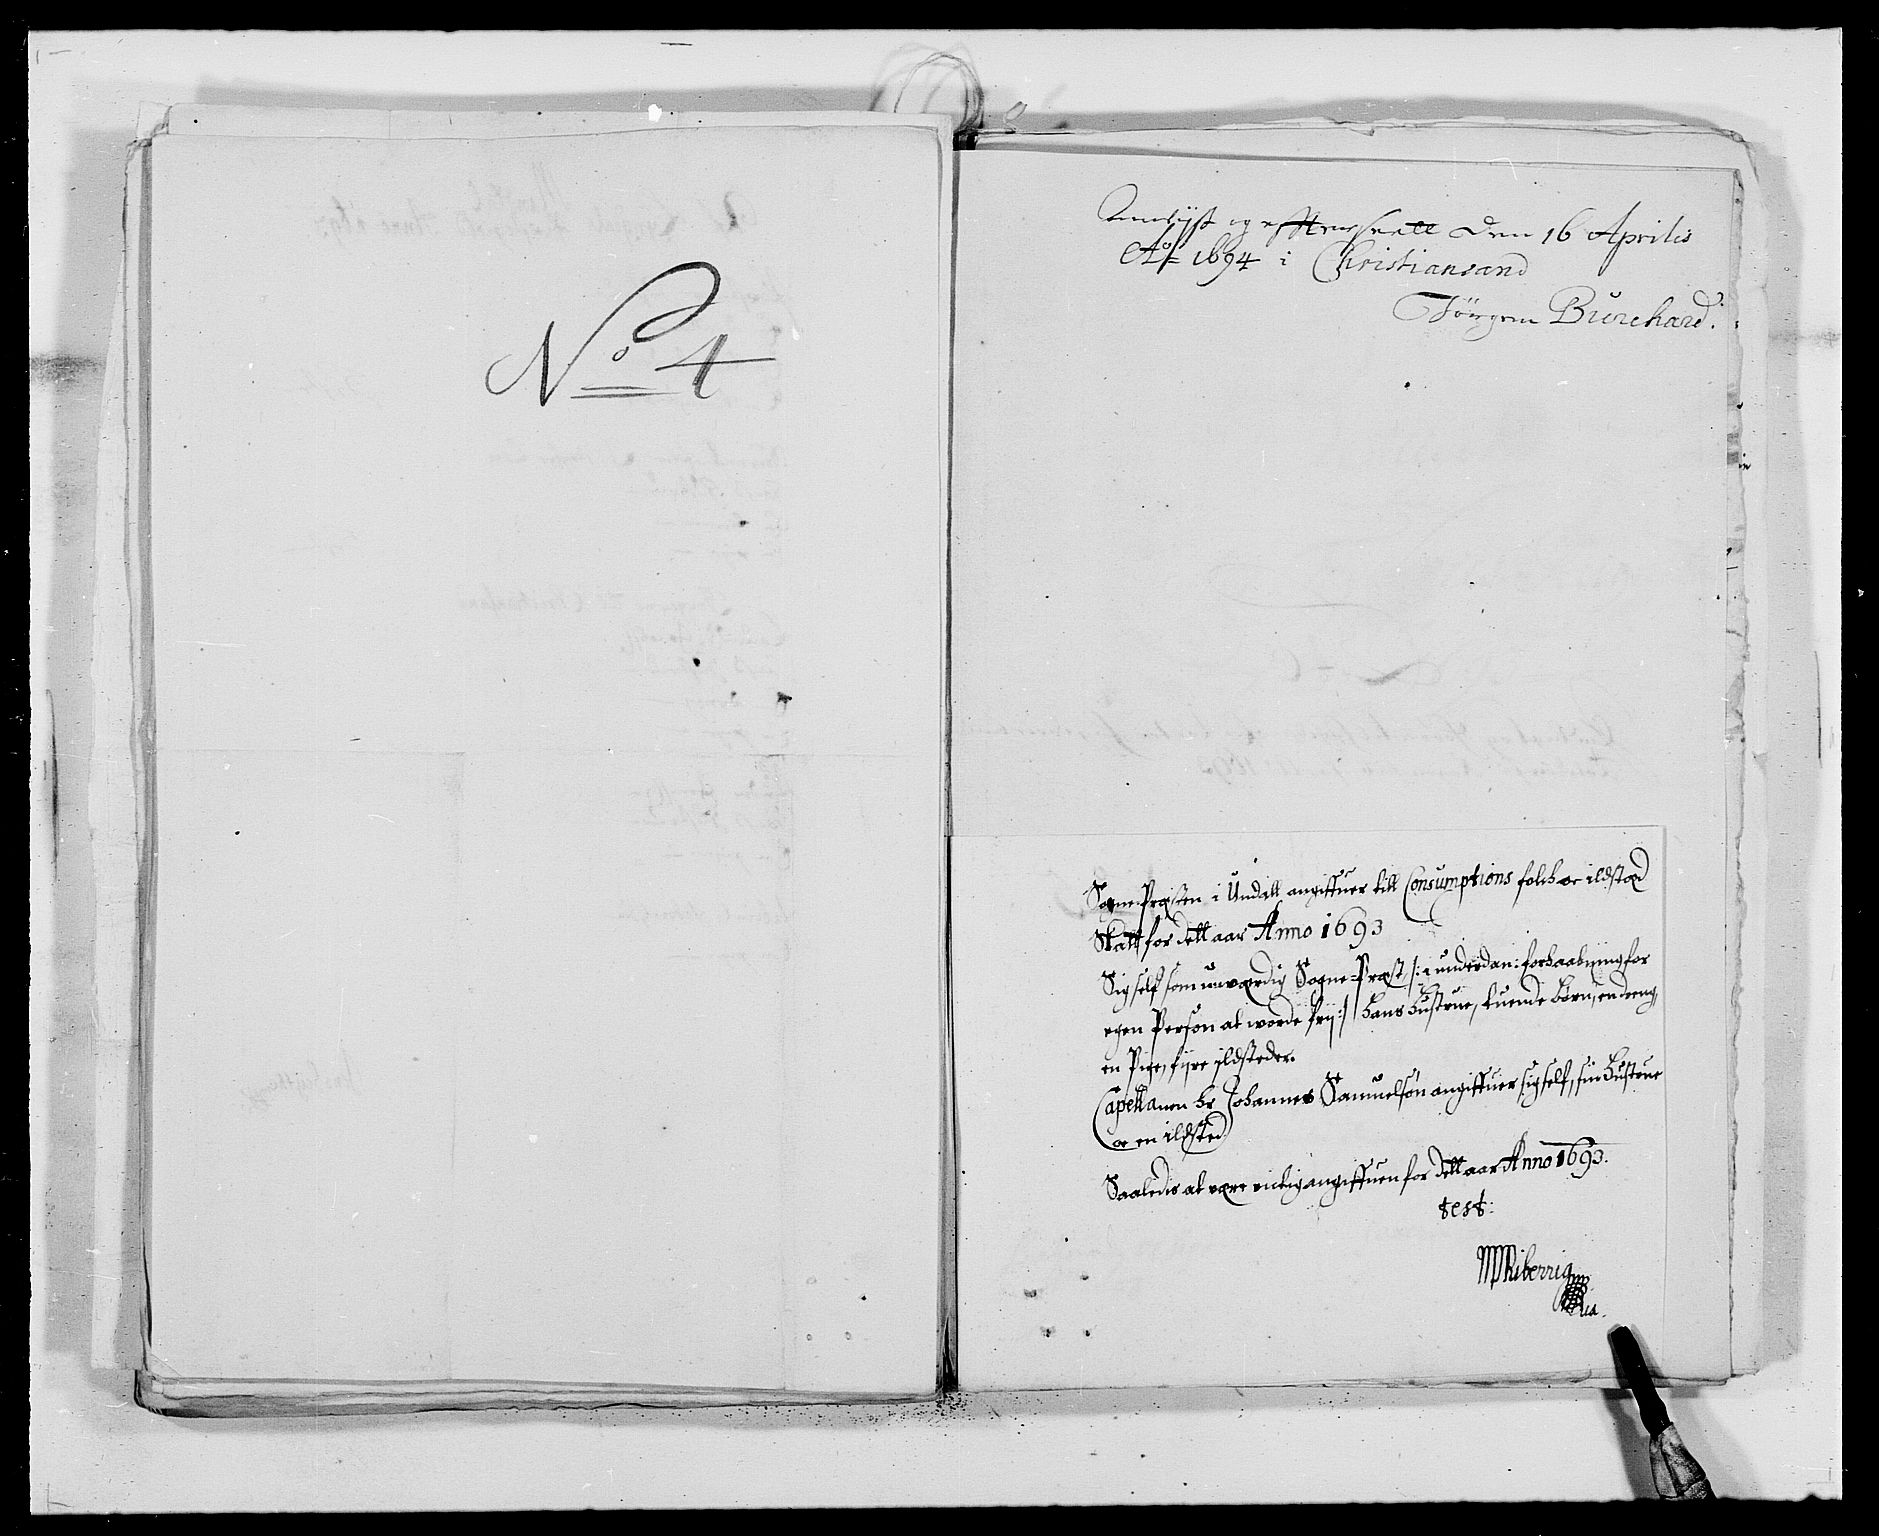 No 4
og efterseett Den 16 Aprilis
Ao 1694 i Christiansand
Jörgen Burchard.
Sogne-Præsten i Undall angiffuer till Consumptions folch oc ildsted
Skatt for dett aar Anno 1693
Sig self som uværdig Sogne-Præst /: i underdan: forhaabning for
egen Person at worde frij :/ hans hustrue, tuende börn, en dreng,
en Pige, fijre ildsteder.
Capellanen hr Johannes Samuelsön angiffuer sig self, sin hustrue
oc en ildsted
Saaledis at være rictig angiffuen for dett aar Anno 1693.
test:
MPRiberrig